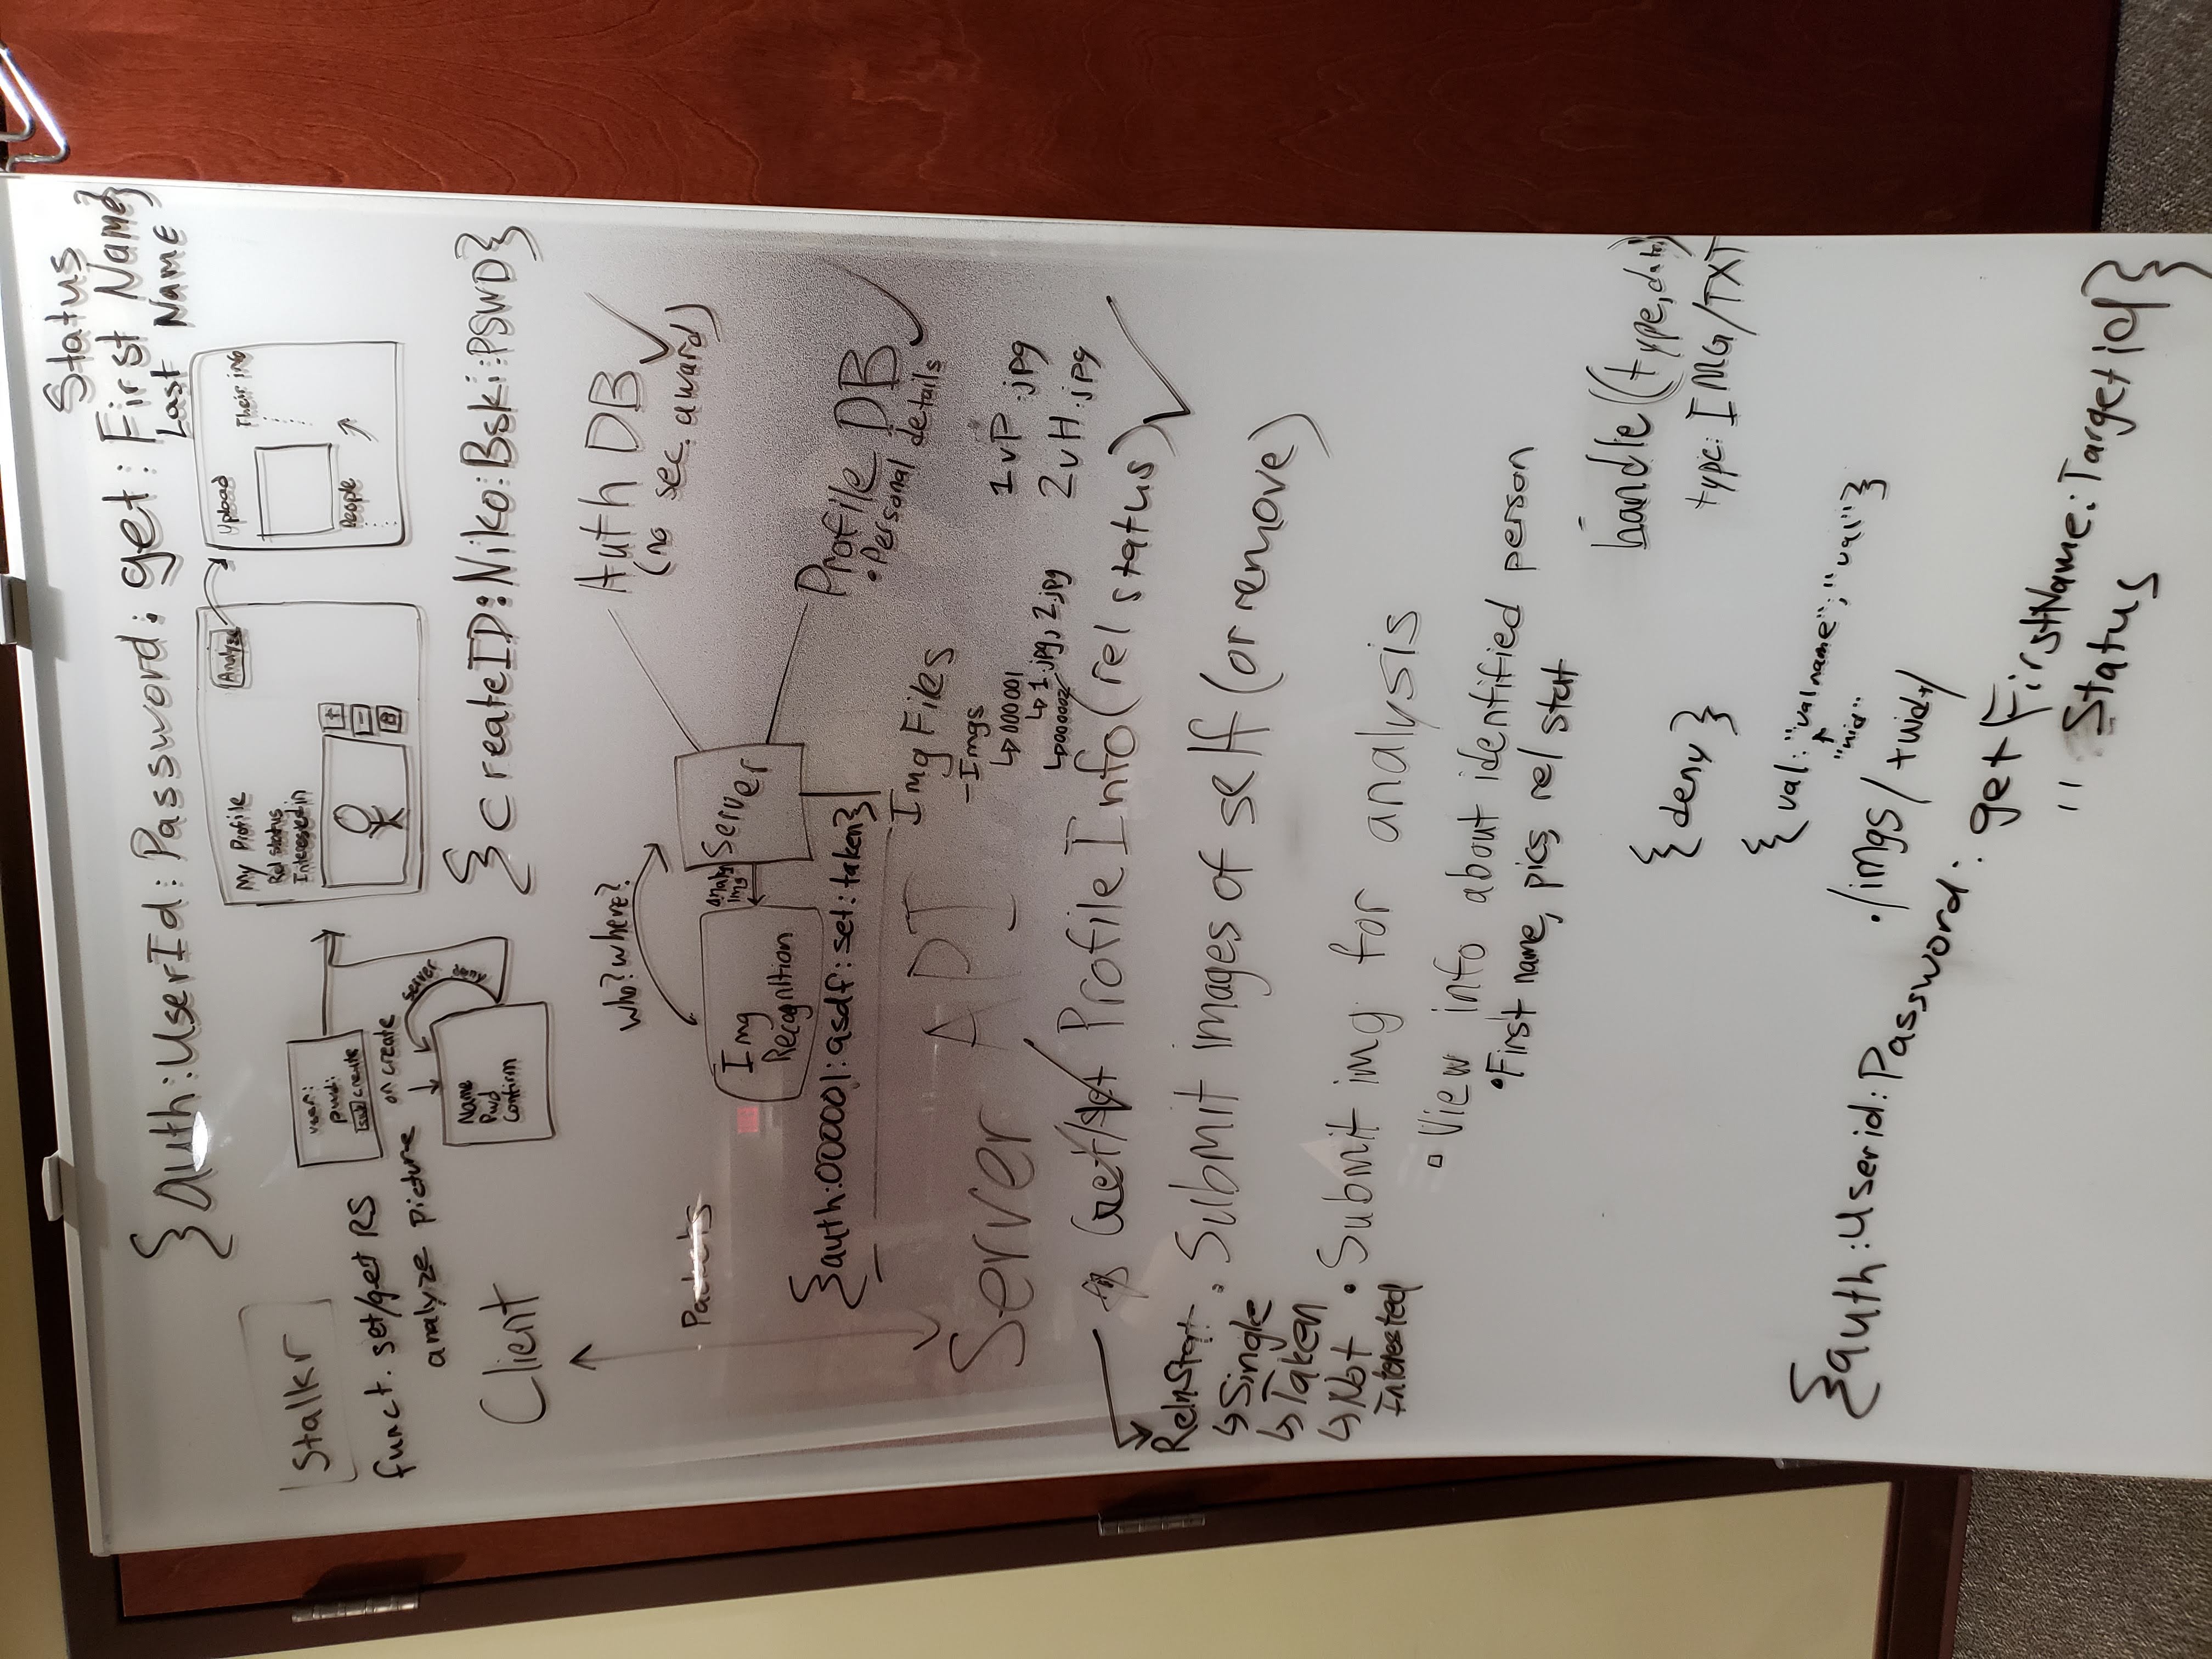 Status
{auth:UserId:Password:get:First Name}
Last Name
Stalkr
funct. set/get RS
analyze picture
user:
pwd:
create
on create
Name
Pwd
Confirm
server
My Profile
Rel status
Interested in
Analyze
Upload
People
Their info
{createID:Niko:Bski:PSWD}
Client
Packets
Who? Where?
Img
Recognition
analyze
img
Server
Auth DB
(no sec. award)
Profile DB
• Personal details
{auth:000001:asdf:set:taken}
Img Files
- Imgs
↳000001
↳1.jpg, 2.jpg
↳0000002
1vP.jpg
2vH.jpg
Server API
Get/Set Profile Info (rel status)
• Submit images of self (or remove)
• Submit img for analysis
▫ View info about identified person
• First name, pics, rel stat
Reln Stat.
↳Single
↳Taken
↳Not
Interested
handle(type, data)
type: IMG/TXT
{deny}
{val:"valname";"val"}
./imgs/
{auth:userid:Password:get FirstName:Targetid}
" Status }